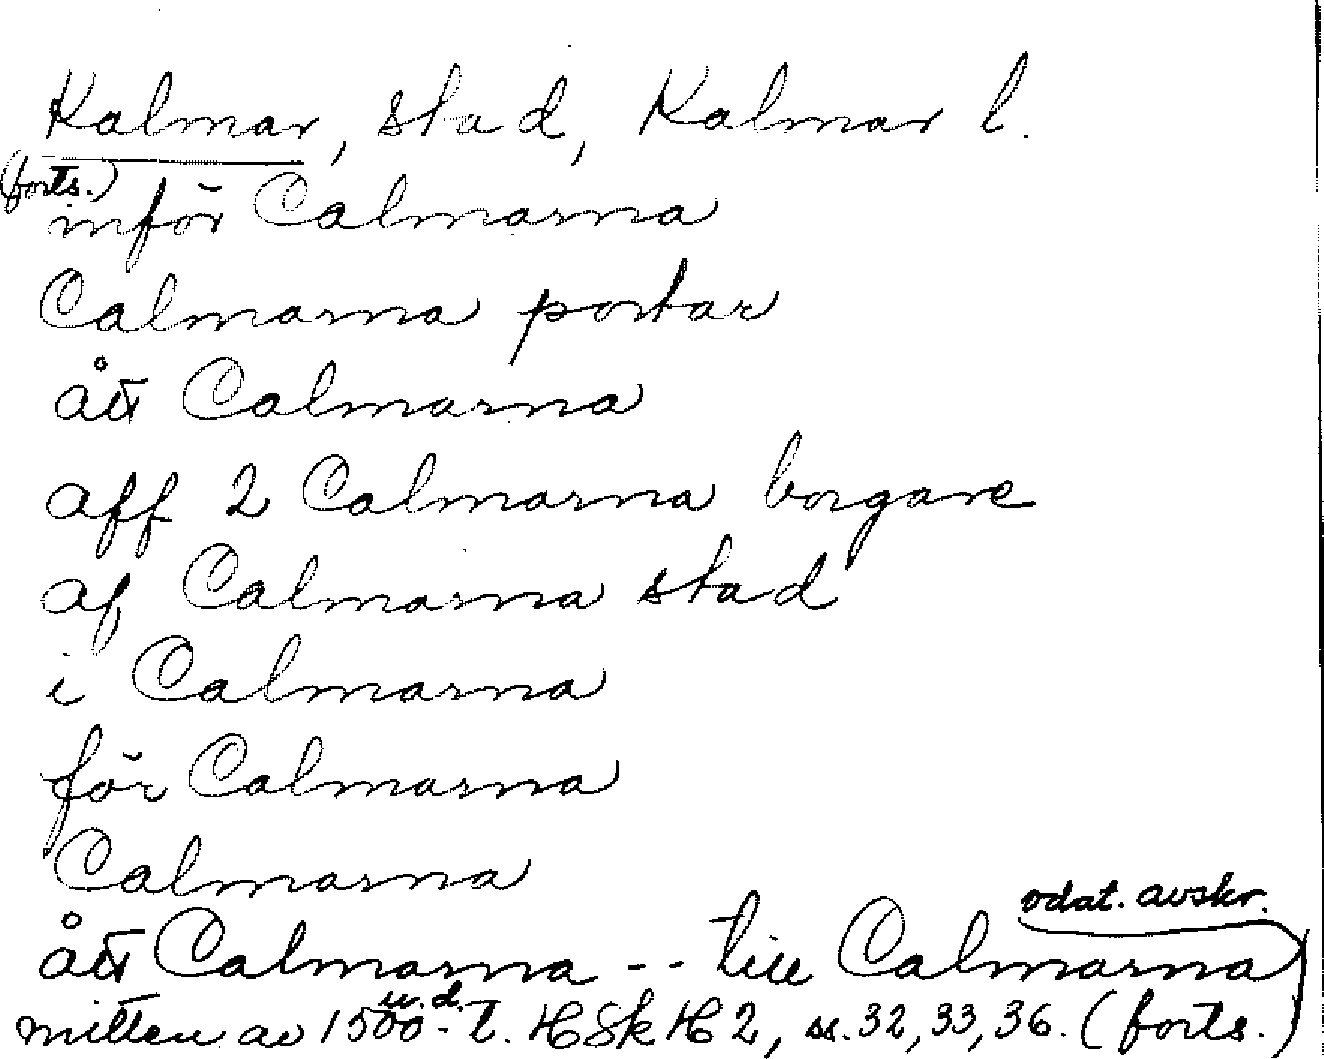 Kalmar, stad, Kalmar l.
(forts.)
inför Calmarna
Calmarna portar
ått Calmarna
aff 2 Calmarna borgare
af Calmarna stad
i Calmarna
för Calmarna
Calmarna
odat. avskr.
ått Calmarna -- till Calmarna
u.d.
mitten av 1500-t. HSk H 2, ss. 32, 33, 36. (forts.)